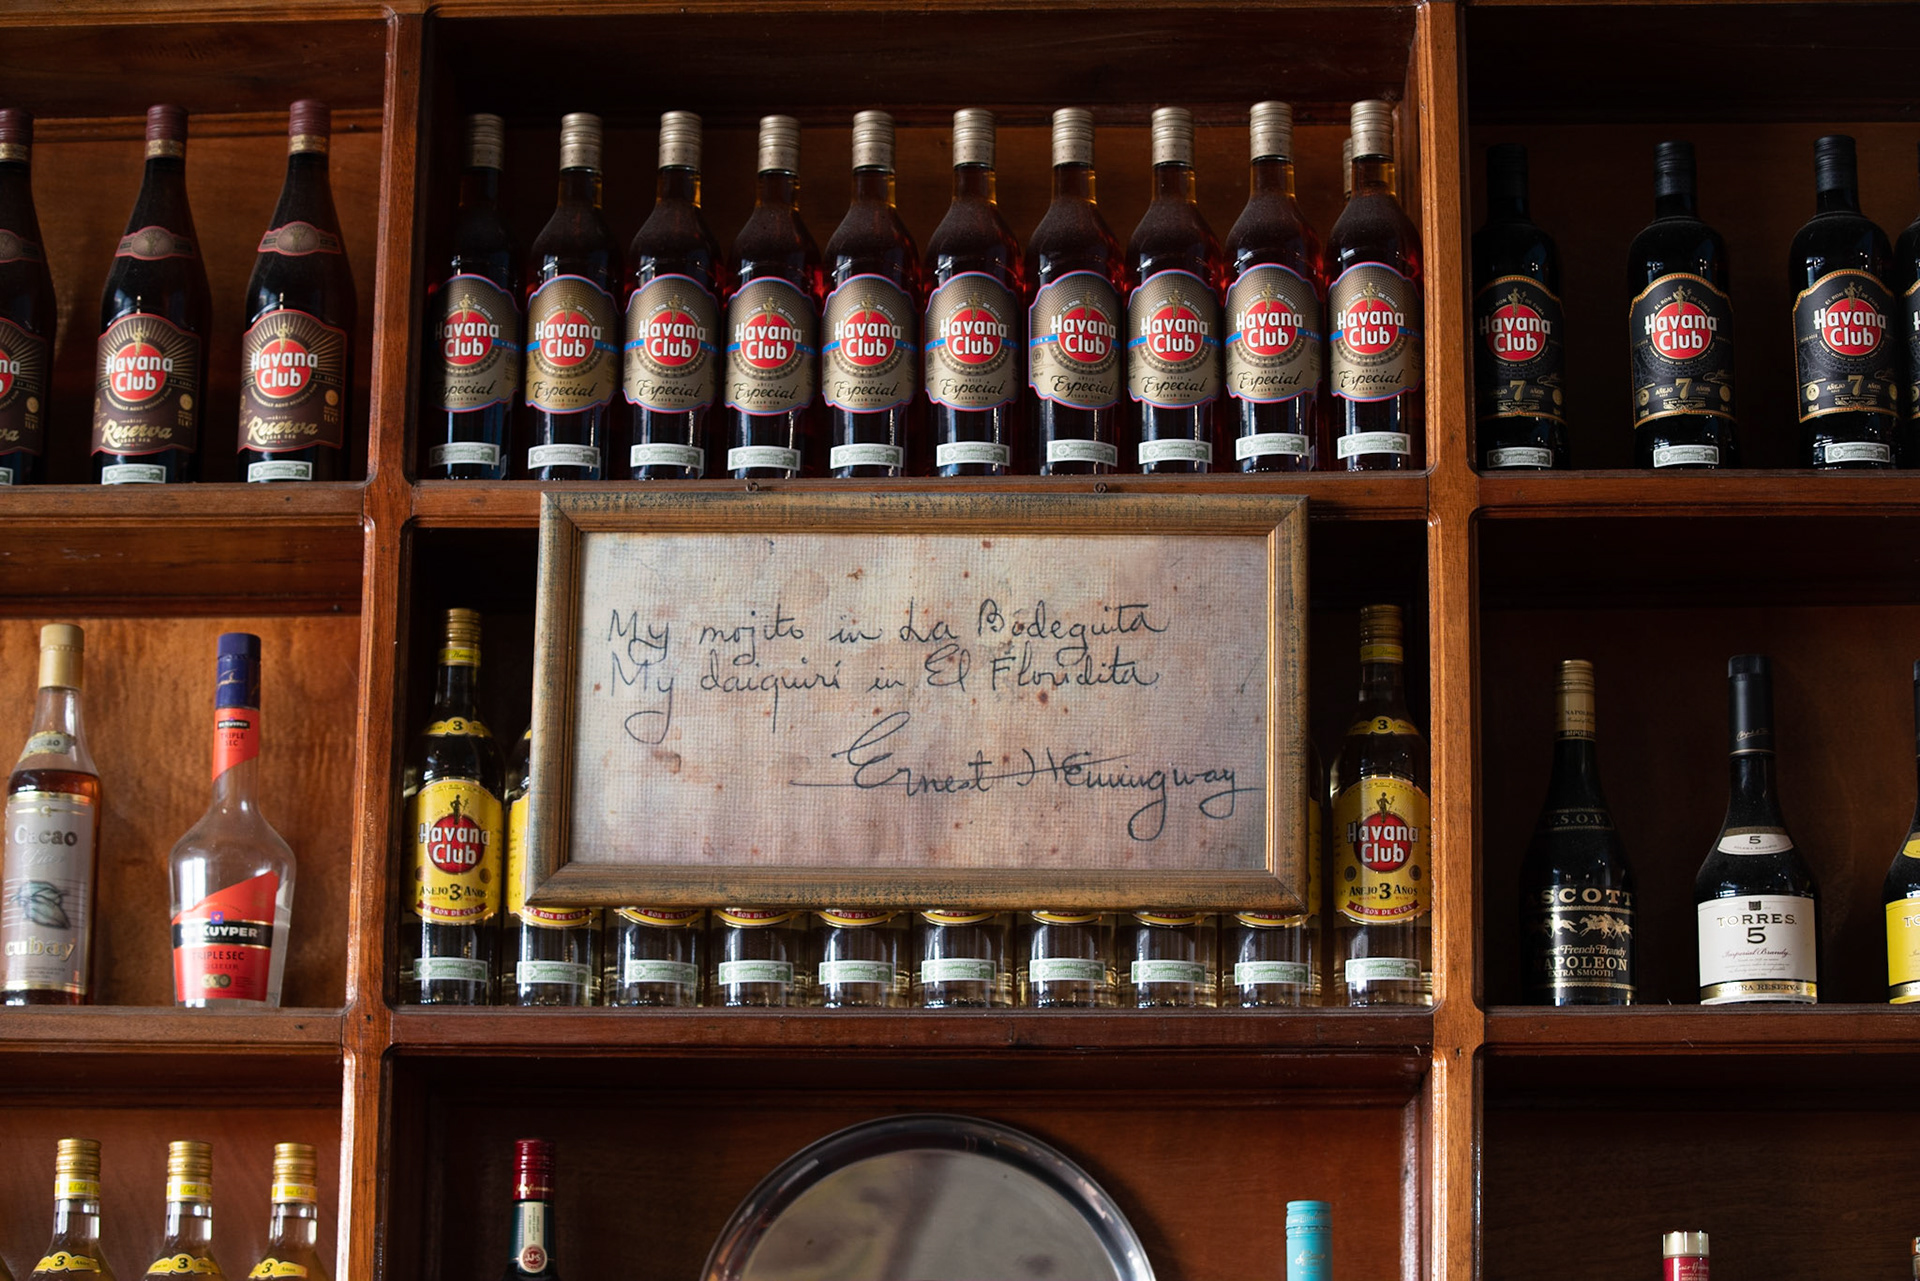 Havana
Club
Reserva
Havana
Club
Reserva
Havana
Club
Especial
Havana
Club
Especial
Havana
Club
Especial
Havana
Club
Especial
Havana
Club
Especial
Havana
Club
Especial
Havana
Club
Especial
Havana
Club
Especial
Havana
Club
Especial
Havana
Club
Especial
Havana
Club
7
Havana
Club
AÑEJO 7 AÑOS
Havana
Club
AÑEJO 7 AÑOS
My mojito in La Bodeguita
My daiquirí in El Floridita
Ernest Hemingway
Cacao
cubay
DE KUYPER
TRIPLE
SEC
DE KUYPER
TRIPLE SEC
3
Havana
Club
AÑEJO 3 AÑOS
EL RON DE CUBA
3
Havana
Club
AÑEJO 3 AÑOS
EL RON DE CUBA
V.S.O.P.
SCOTT
French Brandy
NAPOLEON
EXTRA SMOOTH
5
TORRES
5
Imperial Brandy
SOLERA RESERVA
3
3
3